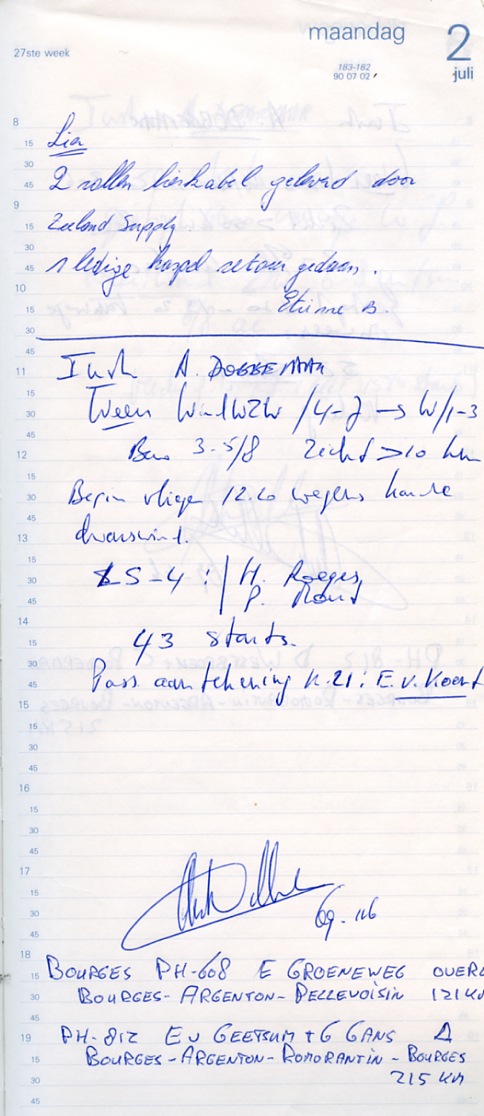 27ste week
maandag 2
juli
183-182
90 07 02
8
15 Lier
30
45 2 rollen lierkabel geleverd door
9
15 Zeeland Supply
30
45 1 ledige haspel retour gedaan.
10
15 Etienne B.
30
45
11 Instr A. DOBBEMAN
15
30 Weer Wind WZW /4-7 → W/1-3
45
12 Bew 3-5/8 Zicht >10 km
15
30 Begin vliegen 12.20 wegens harde
45
13 dwarswind.
15
30 LS-4 : H. Roeges
45 P. Rond
14
15 43 starts.
30
45 Pass aantekening K.21: E.v. Koert
15
15
30
45
16
15
30
45
17
15
30
45
18
15 BOURGES PH-608 E GROENEWEG OVERL
30 BOURGES-ARGENTON-PELLEVOISIN 121 KM
45
19 PH-812 E v GEETSUM + G GANS Δ
15 BOURGES-ARGENTON-ROMORANTIN-BOURGES
30 215 KM
45